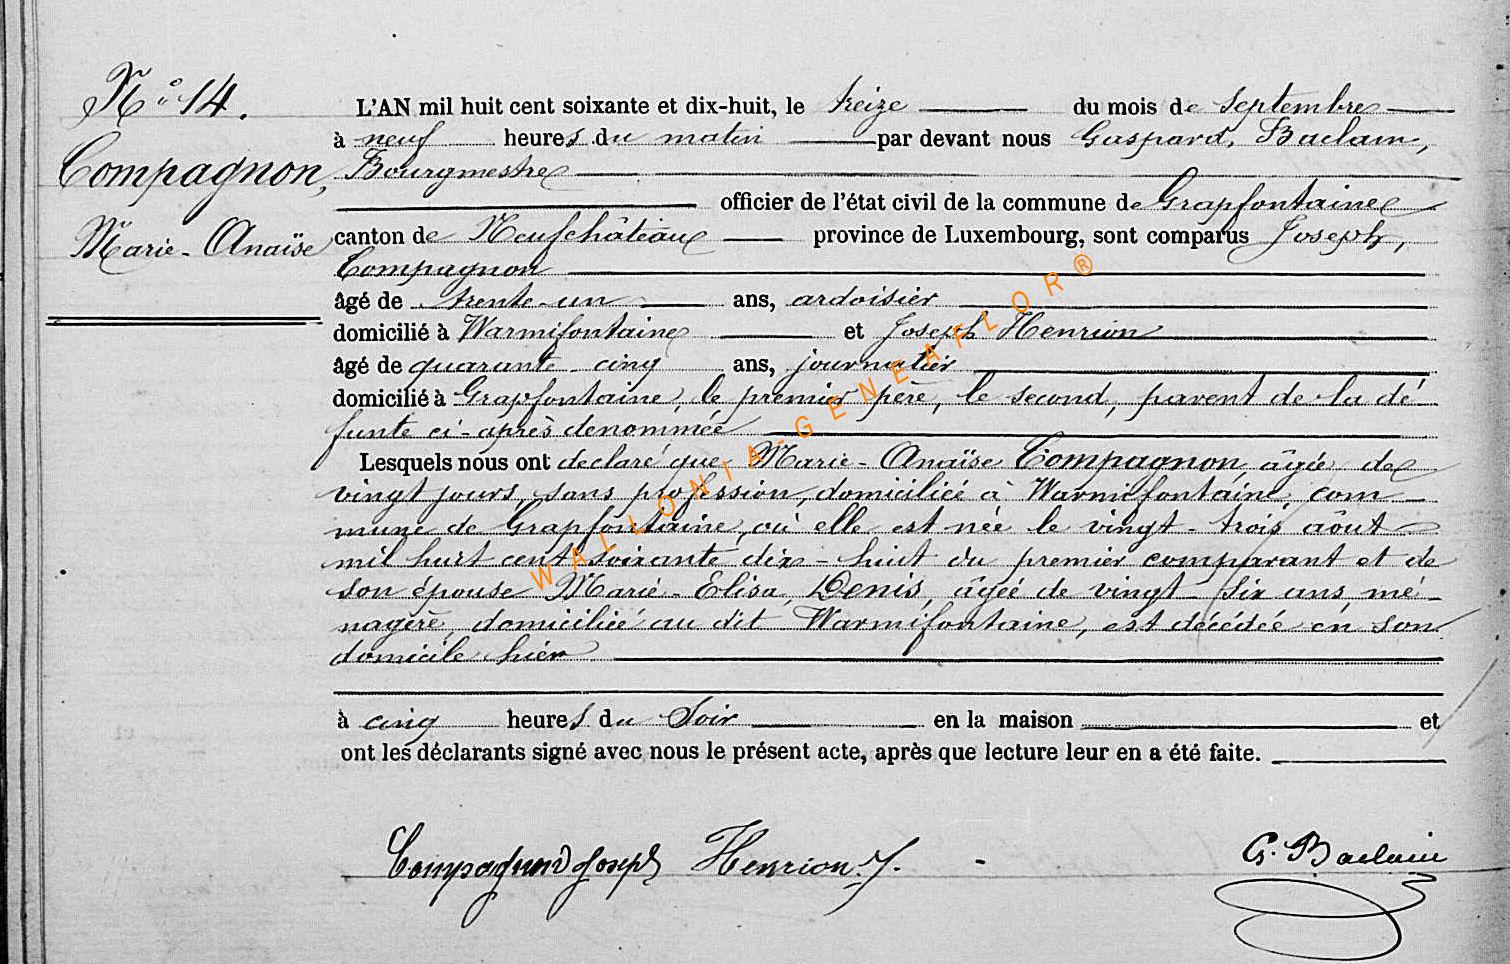 N° 14.
Compagnon,
Marie-Anaïse
L'AN mil huit cent soixante et dix-huit, le treize du mois de septembre
à neuf heures du matin par devant nous Gaspard, Baclain,
Bourgmestre
officier de l'état civil de la commune de Grapfontaine
canton de Neufchâteau province de Luxembourg, sont comparus Joseph,
Compagnon
âgé de trente-un ans, ardoisier
domicilié à Warmifontaine et Joseph Henrion
âgé de quarante-cinq ans, journalier
domicilié à Grapfontaine, le premier père, le second, parent de la dé
funte ci-après denommée
Lesquels nous ont declaré que Marie-Anaïse Compagnon, âgée de
vingt jours, sans profession, domiciliée à Warmifontaine, com-
mune de Grapfontaine, où elle est née le vingt-trois août
mil huit cent soixante dix-huit du premier comparant et de
son épouse Marie-Elisa, Denis, âgée de vingt-six ans, mé-
nagère, domiciliée au dit Warmifontaine, est décédée en son
domicile hier
à cinq heures du Soir en la maison et
ont les déclarants signé avec nous le présent acte, après que lecture leur en a été faite.
Compagnon Joseph Henrion. J. G. Baclain
WALLONIA-GENEAFLOR®